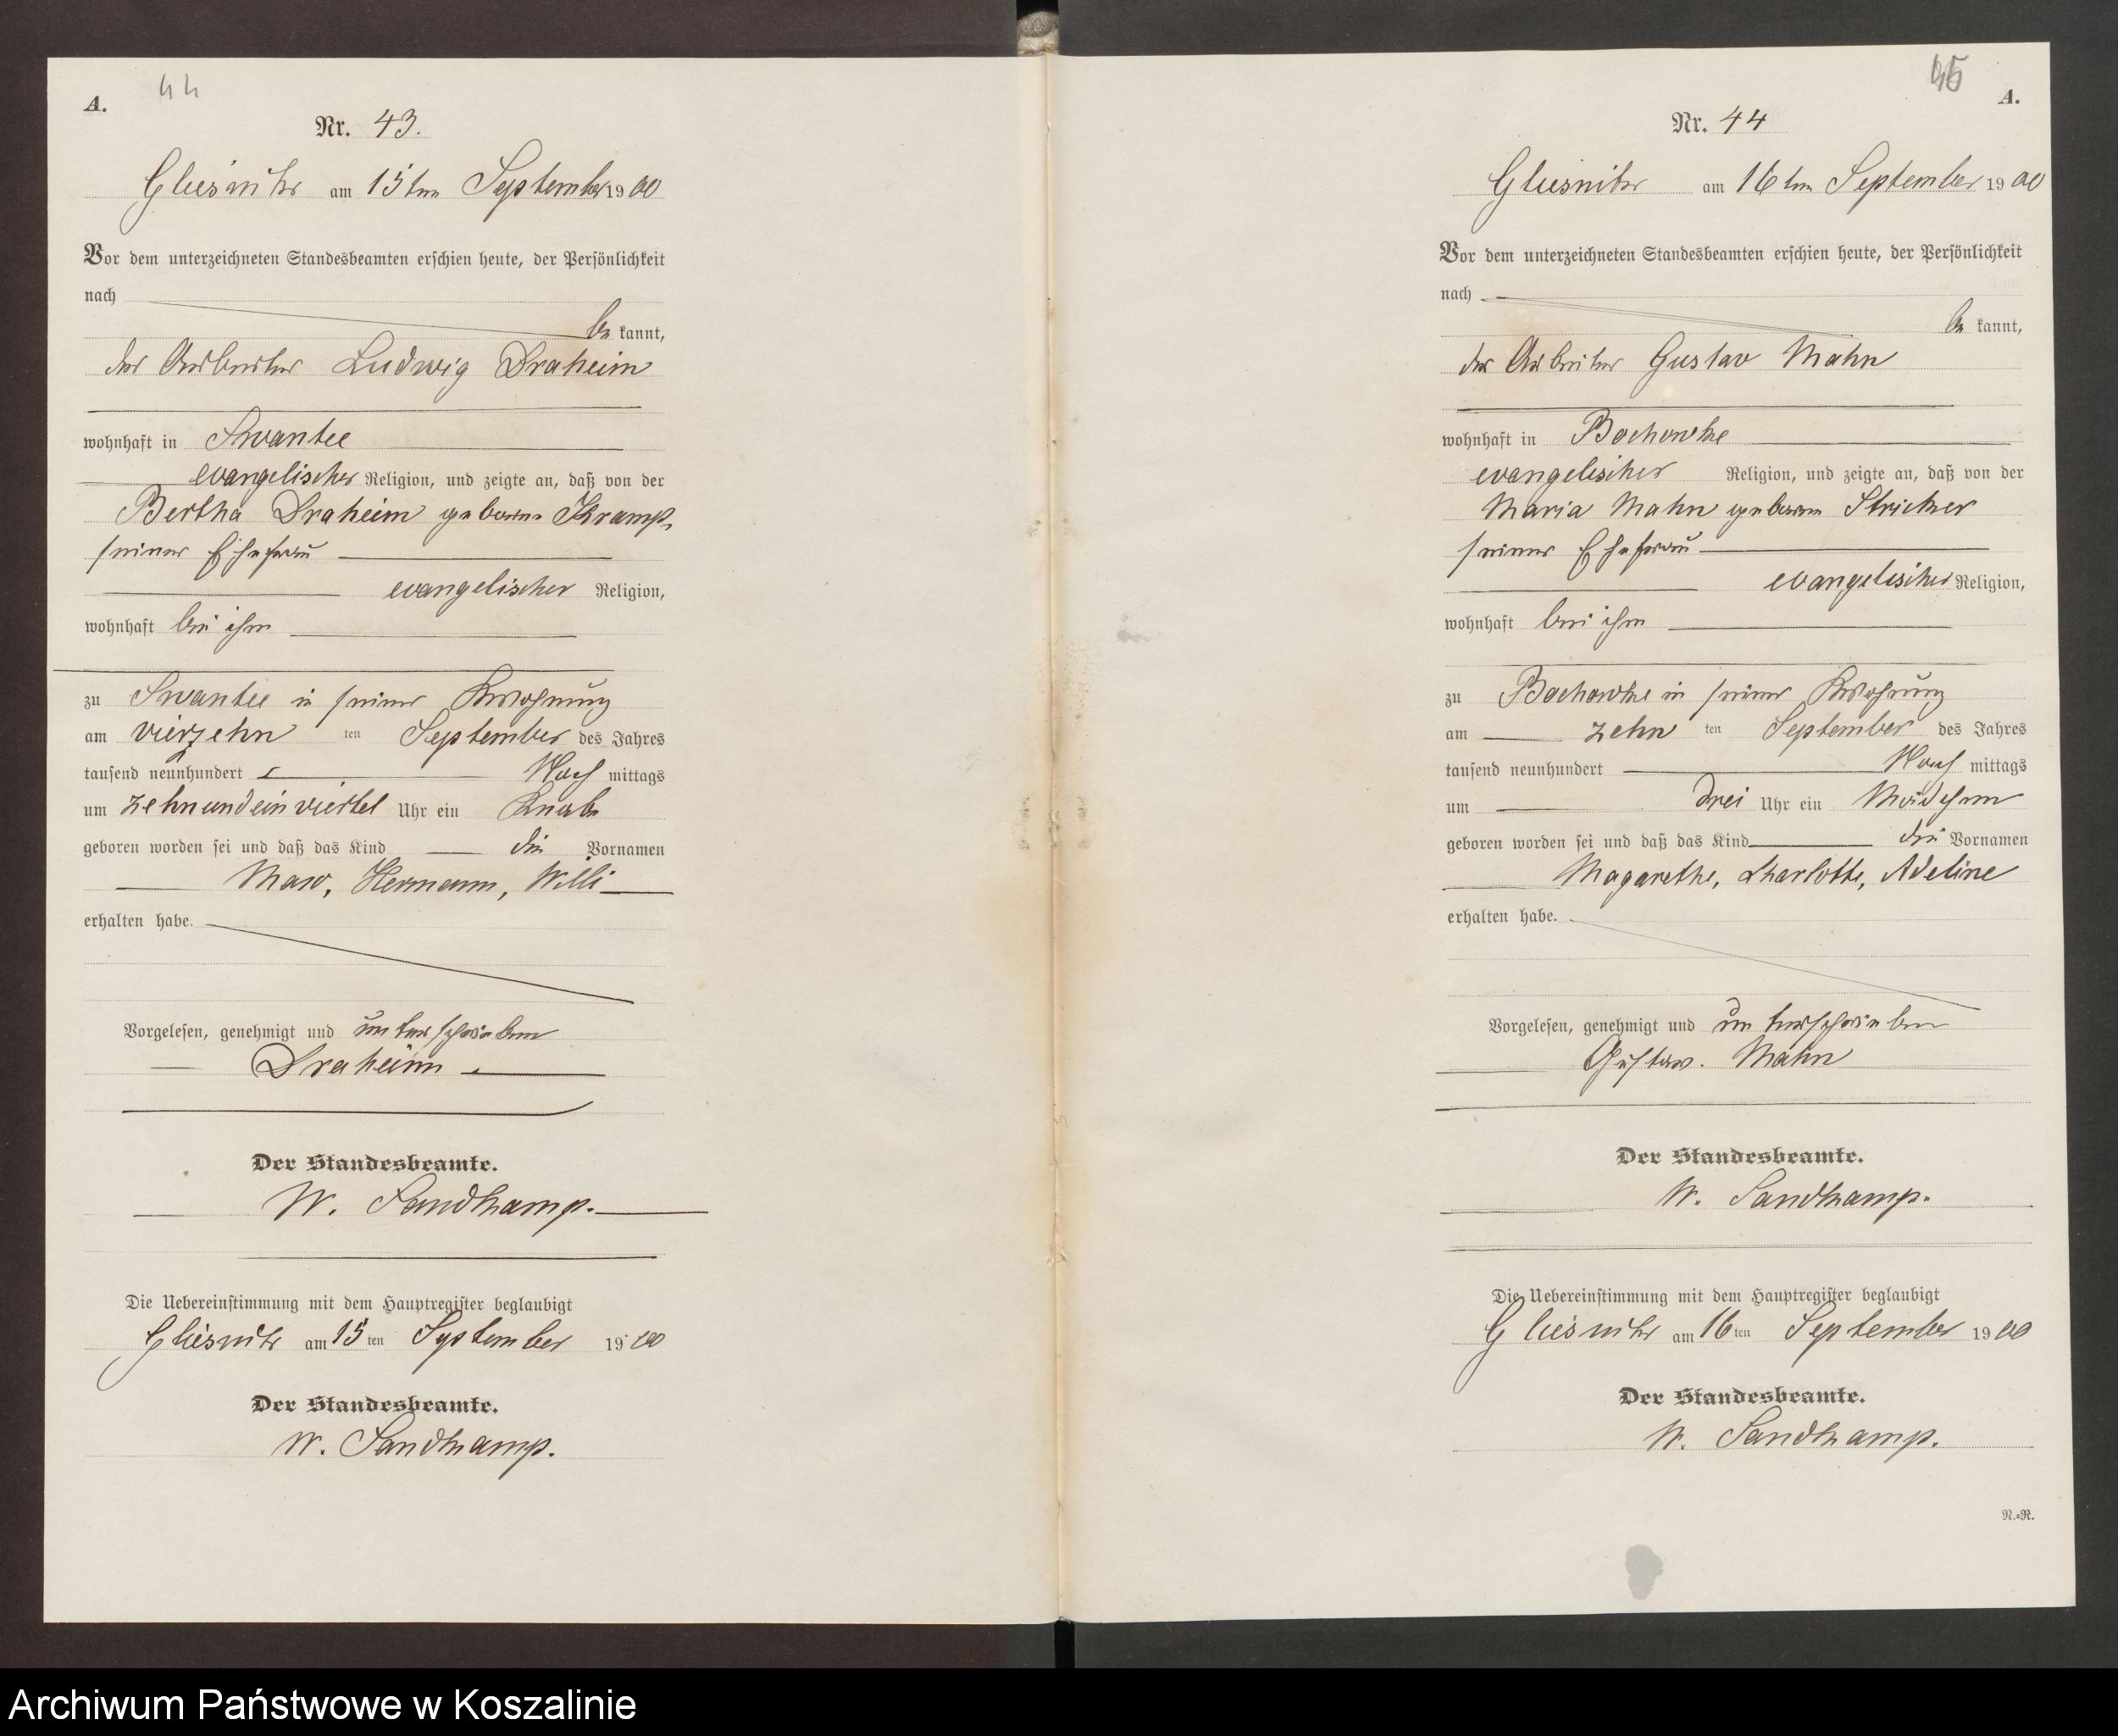 A.
44
Nr. 43.
Gliesnitz am 15ten September 1900
Vor dem unterzeichneten Standesbeamten erschien heute, der Persönlichkeit
nach
be kannt,
der Arbeiter Ludwig Draheim
wohnhaft in Swantee
evangelischer Religion, und zeigte an, daß von der
Bertha Draheim geborne Kramp,
seiner Ehefrau
evangelischer Religion,
wohnhaft bei ihm
zu Swantee in seiner Wohnung
am vierzehn ten September des Jahres
tausend neunhundert Nach mittags
um zehnundeinviertel Uhr ein Knabe
geboren worden sei und daß das Kind die Vornamen
Max, Hermann, Willi
erhalten habe.
Vorgelesen, genehmigt und unterschrieben
Draheim
Der Standesbeamte.
W. Sandkamp.
Die Uebereinstimmung mit dem Hauptregister beglaubigt
Gliesnitz am 15ten September 1900
Der Standesbeamte.
W. Sandkamp.
45
A.
Nr. 44
Gliesnitz am 16ten September 1900
Vor dem unterzeichneten Standesbeamten erschien heute, der Persönlichkeit
nach
be kannt,
der Arbeiter Gustav Mahn
wohnhaft in Bochowke
evangelischer Religion, und zeigte an, daß von der
Maria Mahn geborne Stricker
seiner Ehefrau
evangelischer Religion,
wohnhaft bei ihm
zu Bochowke in seiner Wohnung
am zehn ten September des Jahres
tausend neunhundert Nach mittags
um drei Uhr ein Mädchen
geboren worden sei und daß das Kind die Vornamen
Magarethe, Charlotte, Adeline
erhalten habe.
Vorgelesen, genehmigt und unterschrieben
Gustav. Mahn
Der Standesbeamte.
W. Sandkamp.
Die Uebereinstimmung mit dem Hauptregister beglaubigt
Gliesnitz am 16ten September 1900
Der Standesbeamte.
W. Sandkamp.
N.=R.
Archiwum Państwowe w Koszalinie